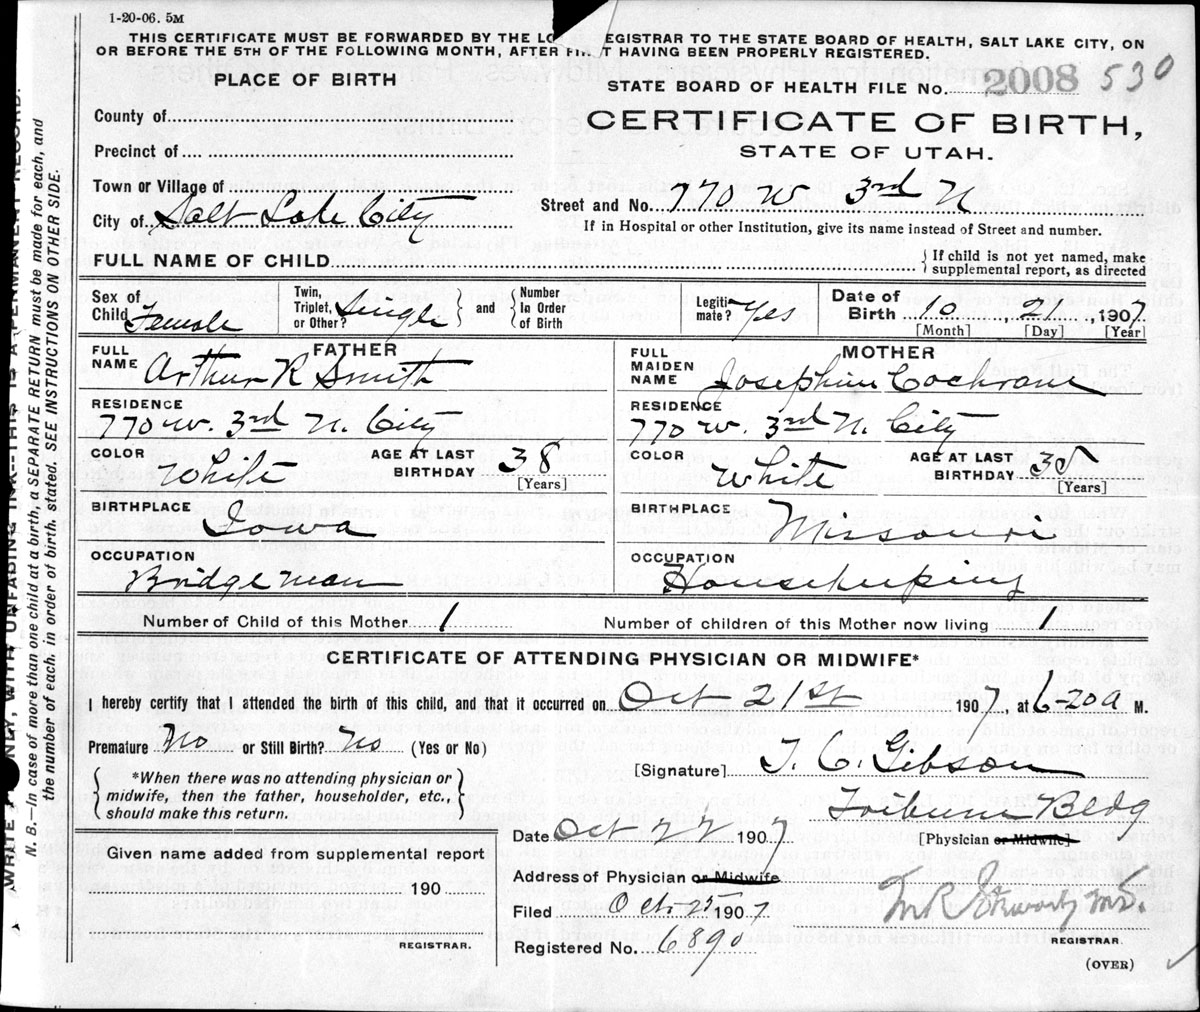 1-20-06. 5M
THIS CERTIFICATE MUST BE FORWARDED BY THE LO EGISTRAR TO THE STATE BOARD OF HEALTH, SALT LAKE CITY, ON
OR BEFORE THE 5TH OF THE FOLLOWING MONTH, AFTER FI T HAVING BEEN PROPERLY REGISTERED.
PLACE OF BIRTH
STATE BOARD OF HEALTH FILE No. 2008 530
County of
CERTIFICATE OF BIRTH,
Precinct of
STATE OF UTAH.
Town or Village of
Street and No. 770 W 3rd N
City of Salt Lake City
If in Hospital or other Institution, give its name instead of Street and number.
FULL NAME OF CHILD
{ If child is not yet named, make
supplemental report, as directed
Sex of
Child Female
Twin,
Triplet,
or Other? Single } and {
Number
In Order
of Birth
Legiti-
mate? Yes
Date of
Birth 10, 21, 1907
[Month] [Day] [Year]
FATHER
FULL
NAME Arthur R Smith
MOTHER
FULL
MAIDEN
NAME Josephine Cochrane
RESIDENCE
770 W. 3rd N. City
RESIDENCE
770 W. 3rd N. City
COLOR White
AGE AT LAST
BIRTHDAY 38
[Years]
COLOR White
AGE AT LAST
BIRTHDAY 35
[Years]
BIRTHPLACE
Iowa
BIRTHPLACE
Missouri
OCCUPATION
Bridge man
OCCUPATION
Housekeeping
Number of Child of this Mother 1
Number of children of this Mother now living 1
CERTIFICATE OF ATTENDING PHYSICIAN OR MIDWIFE*
I hereby certify that I attended the birth of this child, and that it occurred on Oct 21st 1907, at 6-20 a M.
Premature No or Still Birth? No (Yes or No)
[Signature] T. C. Gibson
{ *When there was no attending physician or
midwife, then the father, householder, etc.,
should make this return. }
Tribune Bldg
Date Oct 22 1907
[Physician or Midwife]
Given name added from supplemental report
190
REGISTRAR.
Address of Physician or Midwife
Filed Oct 25 1907
M.D.
REGISTRAR.
Registered No. 6890
(OVER)
WRITE ONLY, WITH UNFADING INK--THIS IS A PERMANENT RECORD.
N. B.—In case of more than one child at a birth, a SEPARATE RETURN must be made for each, and
the number of each, in order of birth, stated. SEE INSTRUCTIONS ON OTHER SIDE.